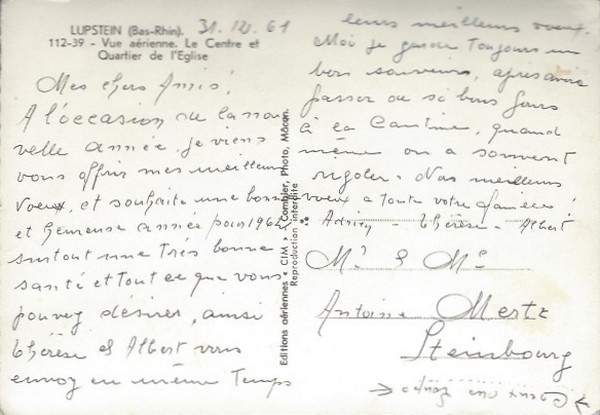 LUPSTEIN (Bas-Rhin). 31.12.61
112-39 - Vue aérienne. Le Centre et
Quartier de l'Eglise
Mes chers Amis!
A l'occasion de la nou
velle année je viens
vous offrir mes meilleurs
voeux, et souhaite une bonne
et heureuse année pour 1962
surtout une très bonne
santé et tout ce que vous
pouvez désirer, ainsi
Thérèse et Albert vous
envoy en même Temps
leurs meilleurs voeux.
Moi je garde toujours un
bon souvenir, après avoir
passer de si bons jours
à la Cantine, quand
même on a souvent
rigoler. Nos meilleurs
voeux a toute votre famille!
Adrien - Thérèse - Albert
Editions aériennes « CIM » Combier, Photo, Mâcon.
Reproduction interdite
Mr & Me
Antoine Mertz
Steinbourg